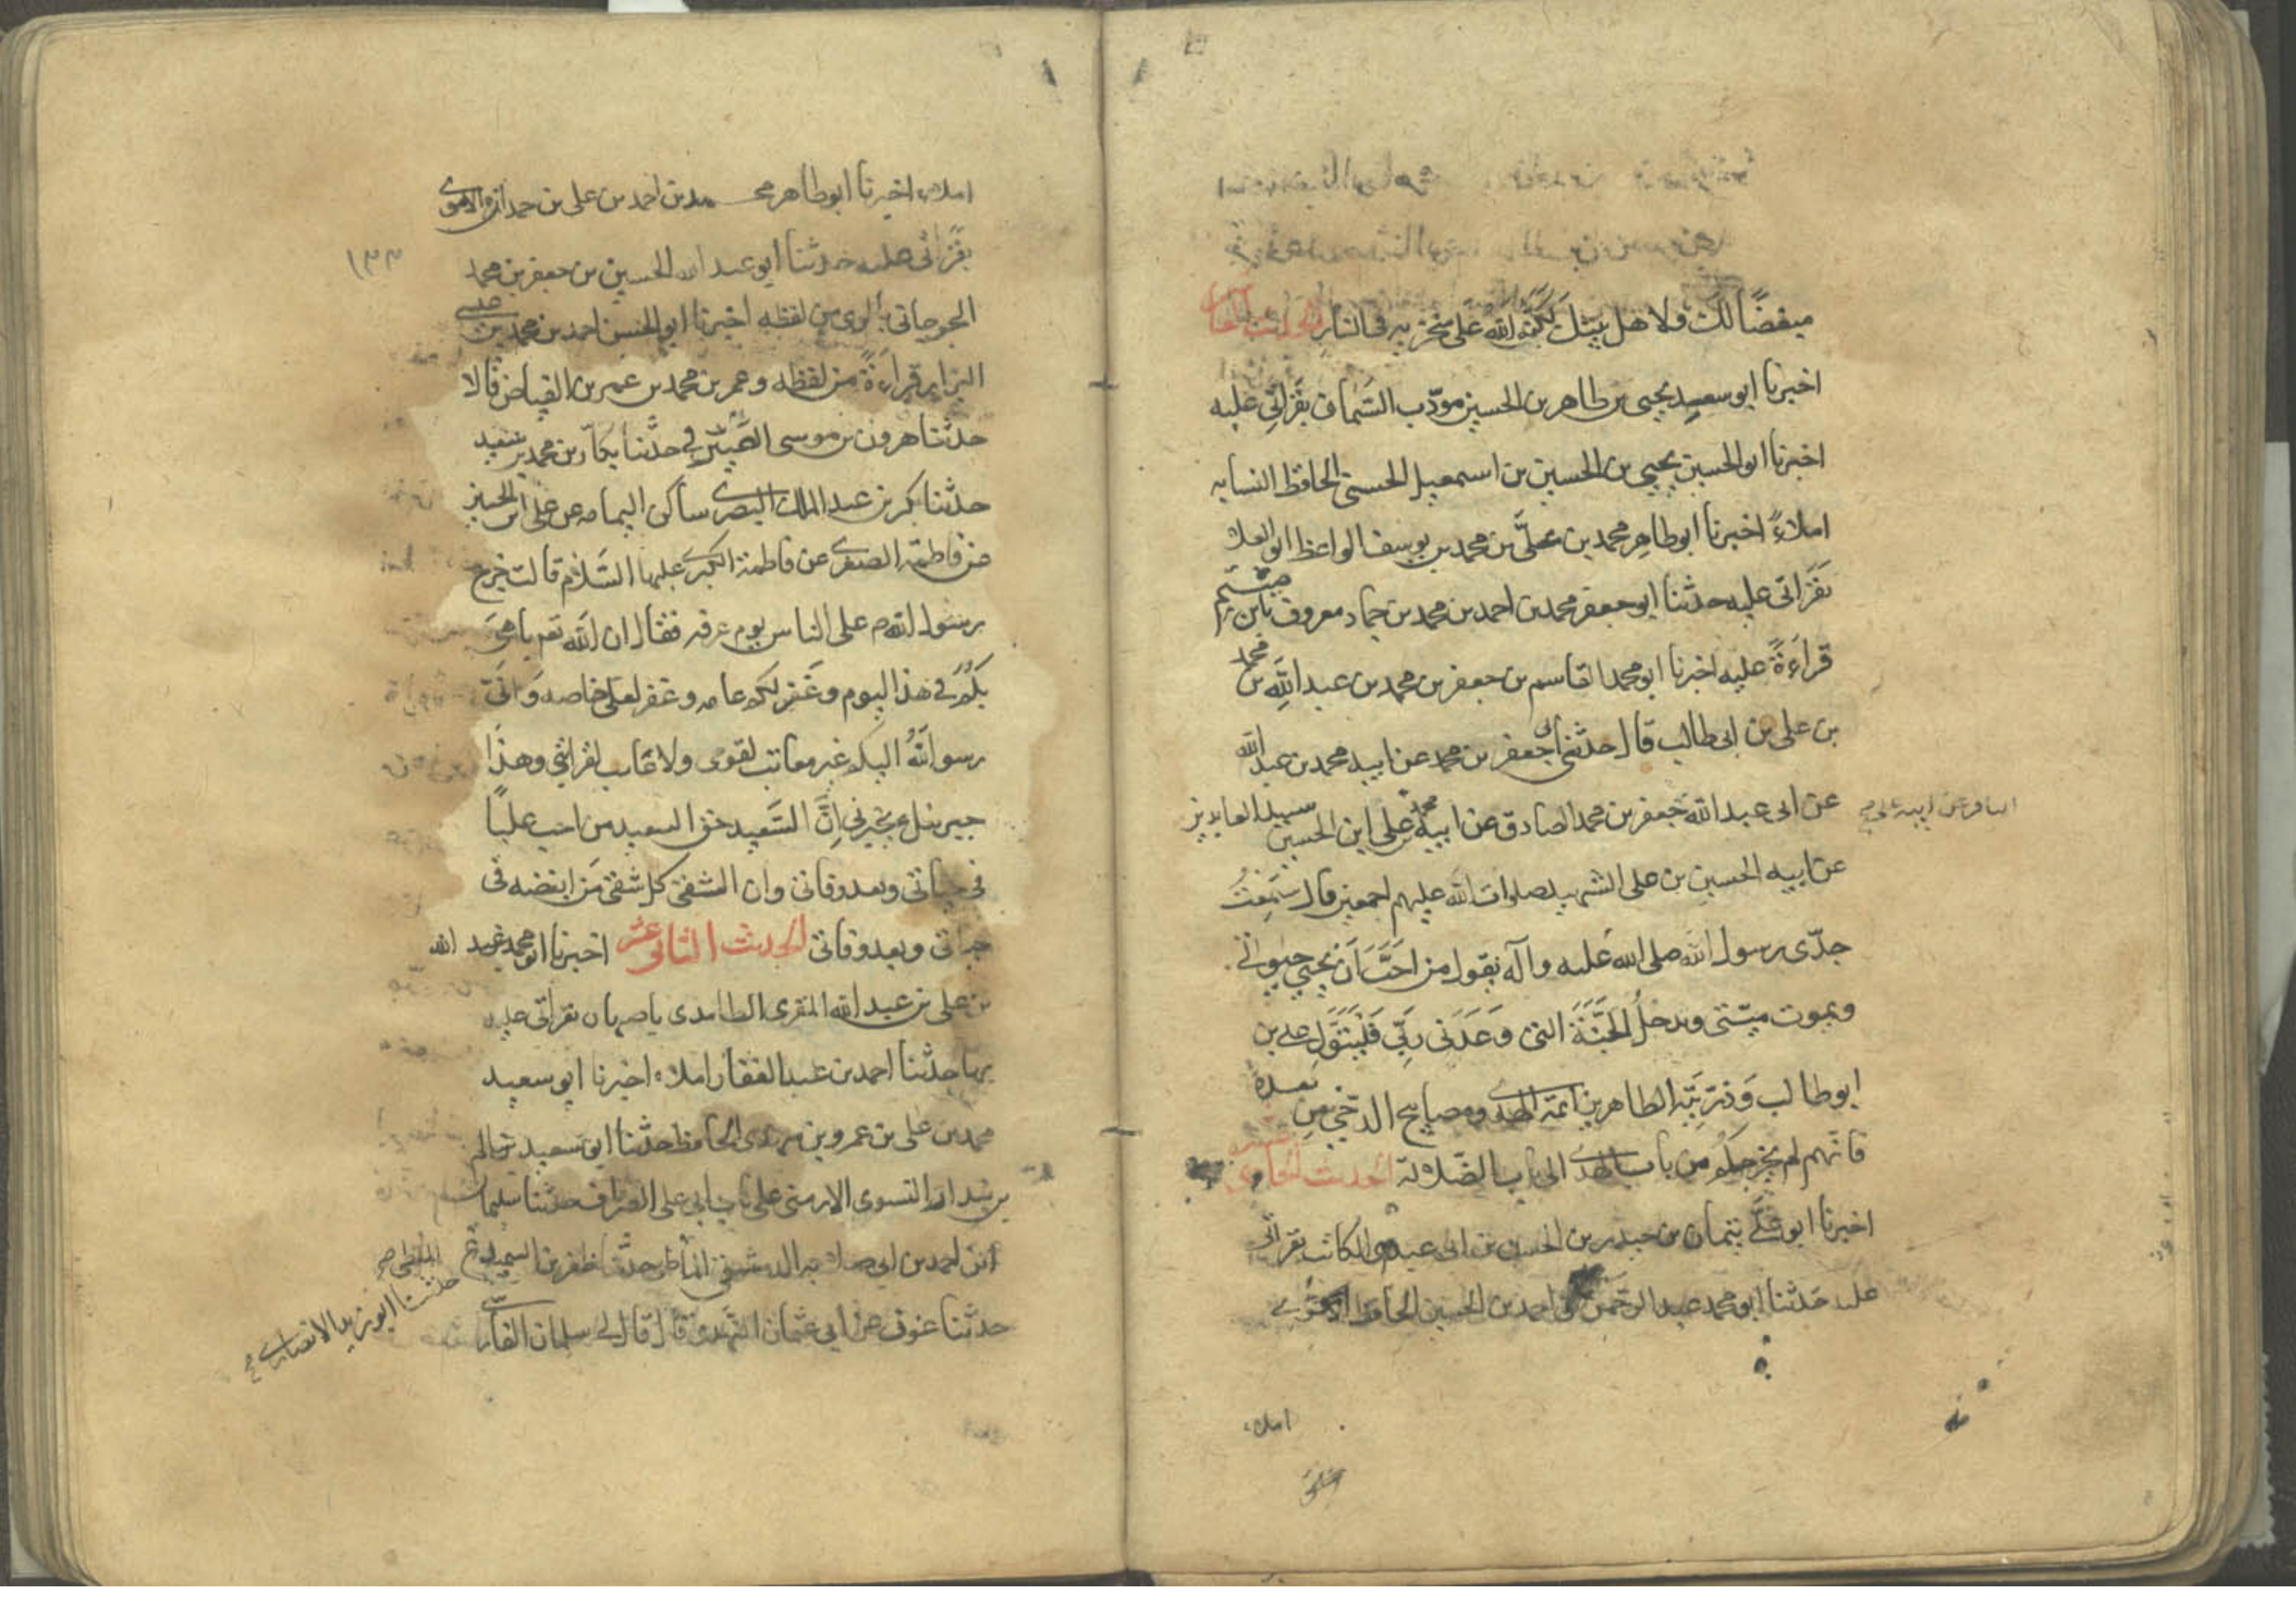 مبغضًا لك ولا هل بيتك لكبّه الله على منخريه في النار الحديث العاشر
اخبرنا ابو سعيد يحيى بن طاهر بن الحسين مودّب السّمان بقراتي عليه
اخبرنا ابو الحسين يحيى بن الحسين بن اسمعيل الحسنى الحافظ النسابه
املاءً اخبرنا ابو طاهر محمد بن على بن محمد بن يوسف الواعظ ابن العلا
بقراتى عليه حدثنا ابو جعفر محمد بن احمد بن محمد بن حماد معروف بابن ميثم
قراءةً عليه اخبرنا ابو محمد القاسم بن جعفر بن محمد بن عبد الله بن محمد
بن على بن ابى طالب قال حدثنى ابى جعفر بن محمد عن ابيه محمد بن عبد الله
عن ابى عبد الله جعفر بن محمد الصادق عن ابيه محمد عن على ابن الحسين سيد العابدين
الباقر عن ابيه على
عن ابيه الحسين بن على الشهيد صلوات الله عليهم اجمعين قال سمعت
جدّى رسول الله صلى الله عليه وآله يقول من احَبَّ اَن يحيى حيوتى
ويموت ميتتى ويدخل الجنّة التى وَعَدَنى رَبِّى فَليَتَوَلّ على بن
ابو طالب وَذرّيّته الطاهرين ائمة الهدى ومصابيح الدّجى من بعده
فانّهم لم يخرجكم من باب الهدى الى باب الضّلالة الحديث الحادى عشر
اخبرنا ابو على يتمان بن حيدر بن الحسن بن ابى عيسى الكاتب بقراتى
عليه حَدثنا ابو محمد عبد الرحمن بن احمد بن الحسين الحافظ
املاء
املاء اخبرنا ابو طاهر محمد بن احمد بن على بن حمدان الاموى
بقراتى عليه حدثنا ابو عبد الله الحسين بن جعفر بن محمد
١٣٣
الجرجانى بالرى من لفظه اخبرنا ابو الحسن احمد بن محمد بن عيسى
البزاز قراءةً من لفظه وعمر بن محمد بن عمر بن الفياض قالا
حدّثنا هرون بن موسى حدّثنا بكار بن محمد بن سعيد
حدثنا بكر بن عبد الملك البصرى ساكن اليمامه عن على ابن الحسين
عن فاطمة الصغرى عن فاطمة الكبرى عليها السّلام قالت خرج
رسول الله ص على الناس يوم عرفه فقال ان الله تعم باهى
بكم فى هذا اليوم وغفر لكم عامه وغفر لعلى خاصه وَانّى
رسول الله اليكم غير معاتب لقومى ولا محاب لقرابتى وهذا
جبرئيل ع يخبرنى اِنَّ السَّعيد حق السعيد من احب عليًا
فى حياتى وبعد وفاتى وان الشقى كل شقى مَن ابغضه فى
حياتى وبعد وفاتى الحديث الثانى عشر اخبرنا ابو محمد عبد الله
بن على بن عبد الله المقرى الطامدى باصبهان بقراتى عليه
بها حدثنا احمد بن عبد الغفار املاء اخبرنا ابو سعيد
محمد بن على بن عمرو بن مهدى الحافظ حدثنا ابو سعيد
النسوى الارمنى على باب ابى على الصراف حدثنا سليمان
ابن احمد بن ابى صلابه الدمشقى حدثنا ظفر بن السميدع
حدثنا ابو زيد الانصارى
حدثنا عوف عن ابى عثمان النهدى قال قال لى سلمان الفارسى